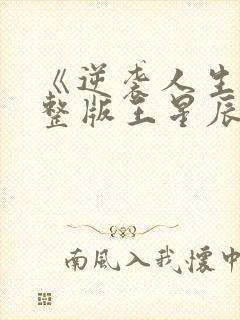 《逆袭人生
整版王星辰
南風入我懷中